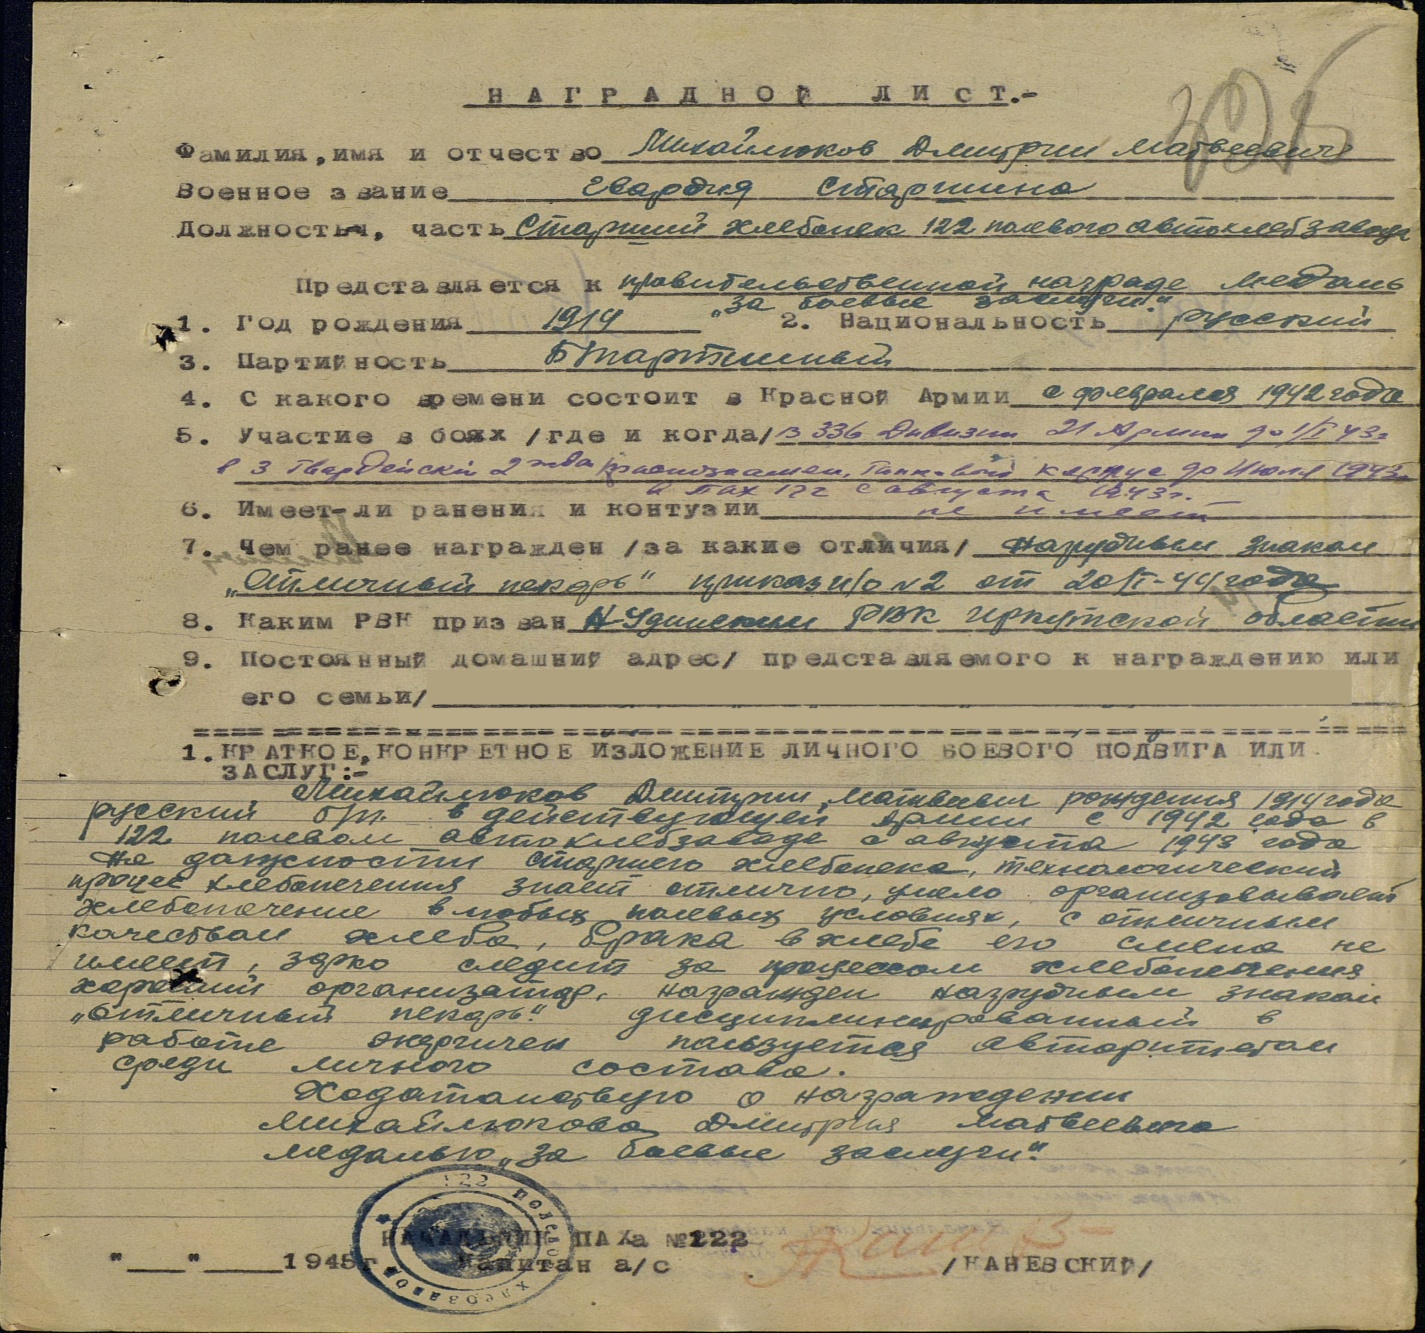 НАГРАДНОЙ ЛИСТ.-
Фамилия, имя и отчество Михайлюков Дмитрий Матвеевич
Военное звание Гвардия Старшина
Должность, часть Старший хлебопек 122 полевого автохлебзавода
Представляется к правительственной награде медаль
„за боевые заслуги"
1. Год рождения 1914 2. Национальность русский
3. Партийность Б/партийный
4. С какого времени состоит в Красной Армии с февраля 1942 года
5. Участие в боях /где и когда/ в 336 Дивизии 21 Армии до 1/I 43г
в 3 Гвардейской танковой корпусе до Июля 1943г
в ПАХ 122 с августа 1943г.
6. Имеет-ли ранения и контузии не имеет
7. Чем ранее награжден /за какие отличия/ нагрудным знаком
„Отличный пекарь" приказ №2 от 20/I-44 года
8. Каким РВК призван Н-Удинским РВК Иркутской области
9. Постоянный домашний адрес/ представляемого к награждению или
его семьи/
1. КРАТКОЕ, КОНКРЕТНОЕ ИЗЛОЖЕНИЕ ЛИЧНОГО БОЕВОГО ПОДВИГА ИЛИ
ЗАСЛУГ:-
Михайлюков Дмитрий Матвеевич рождения 1914 года
русский б/п. в действующей армии с 1942 года в
122 полевом автохлебзаводе с августа 1943 года
на должности старшего хлебопека, технологический
процес хлебопечения знает отлично, умело организовывает
хлебопечение в любых полевых условиях, с отличным
качеством хлеба, брака в хлебе его смена не
имеет, зорко следит за процессом хлебопечения
хороший организатор. награжден нагрудным знаком
„отличный пекарь." дисциплинированный в
работе энергичен пользуется авторитетом
среди личного состава.
Ходатайствую о награждении
Михайлюкова Дмитрия Матвеевича
медалью „за боевые заслуги".
НАЧАЛЬНИК ПАХа №122
"___"____1945г Капитан а/с /КАНЕВСКИЙ/
122 полевой хлебозавод